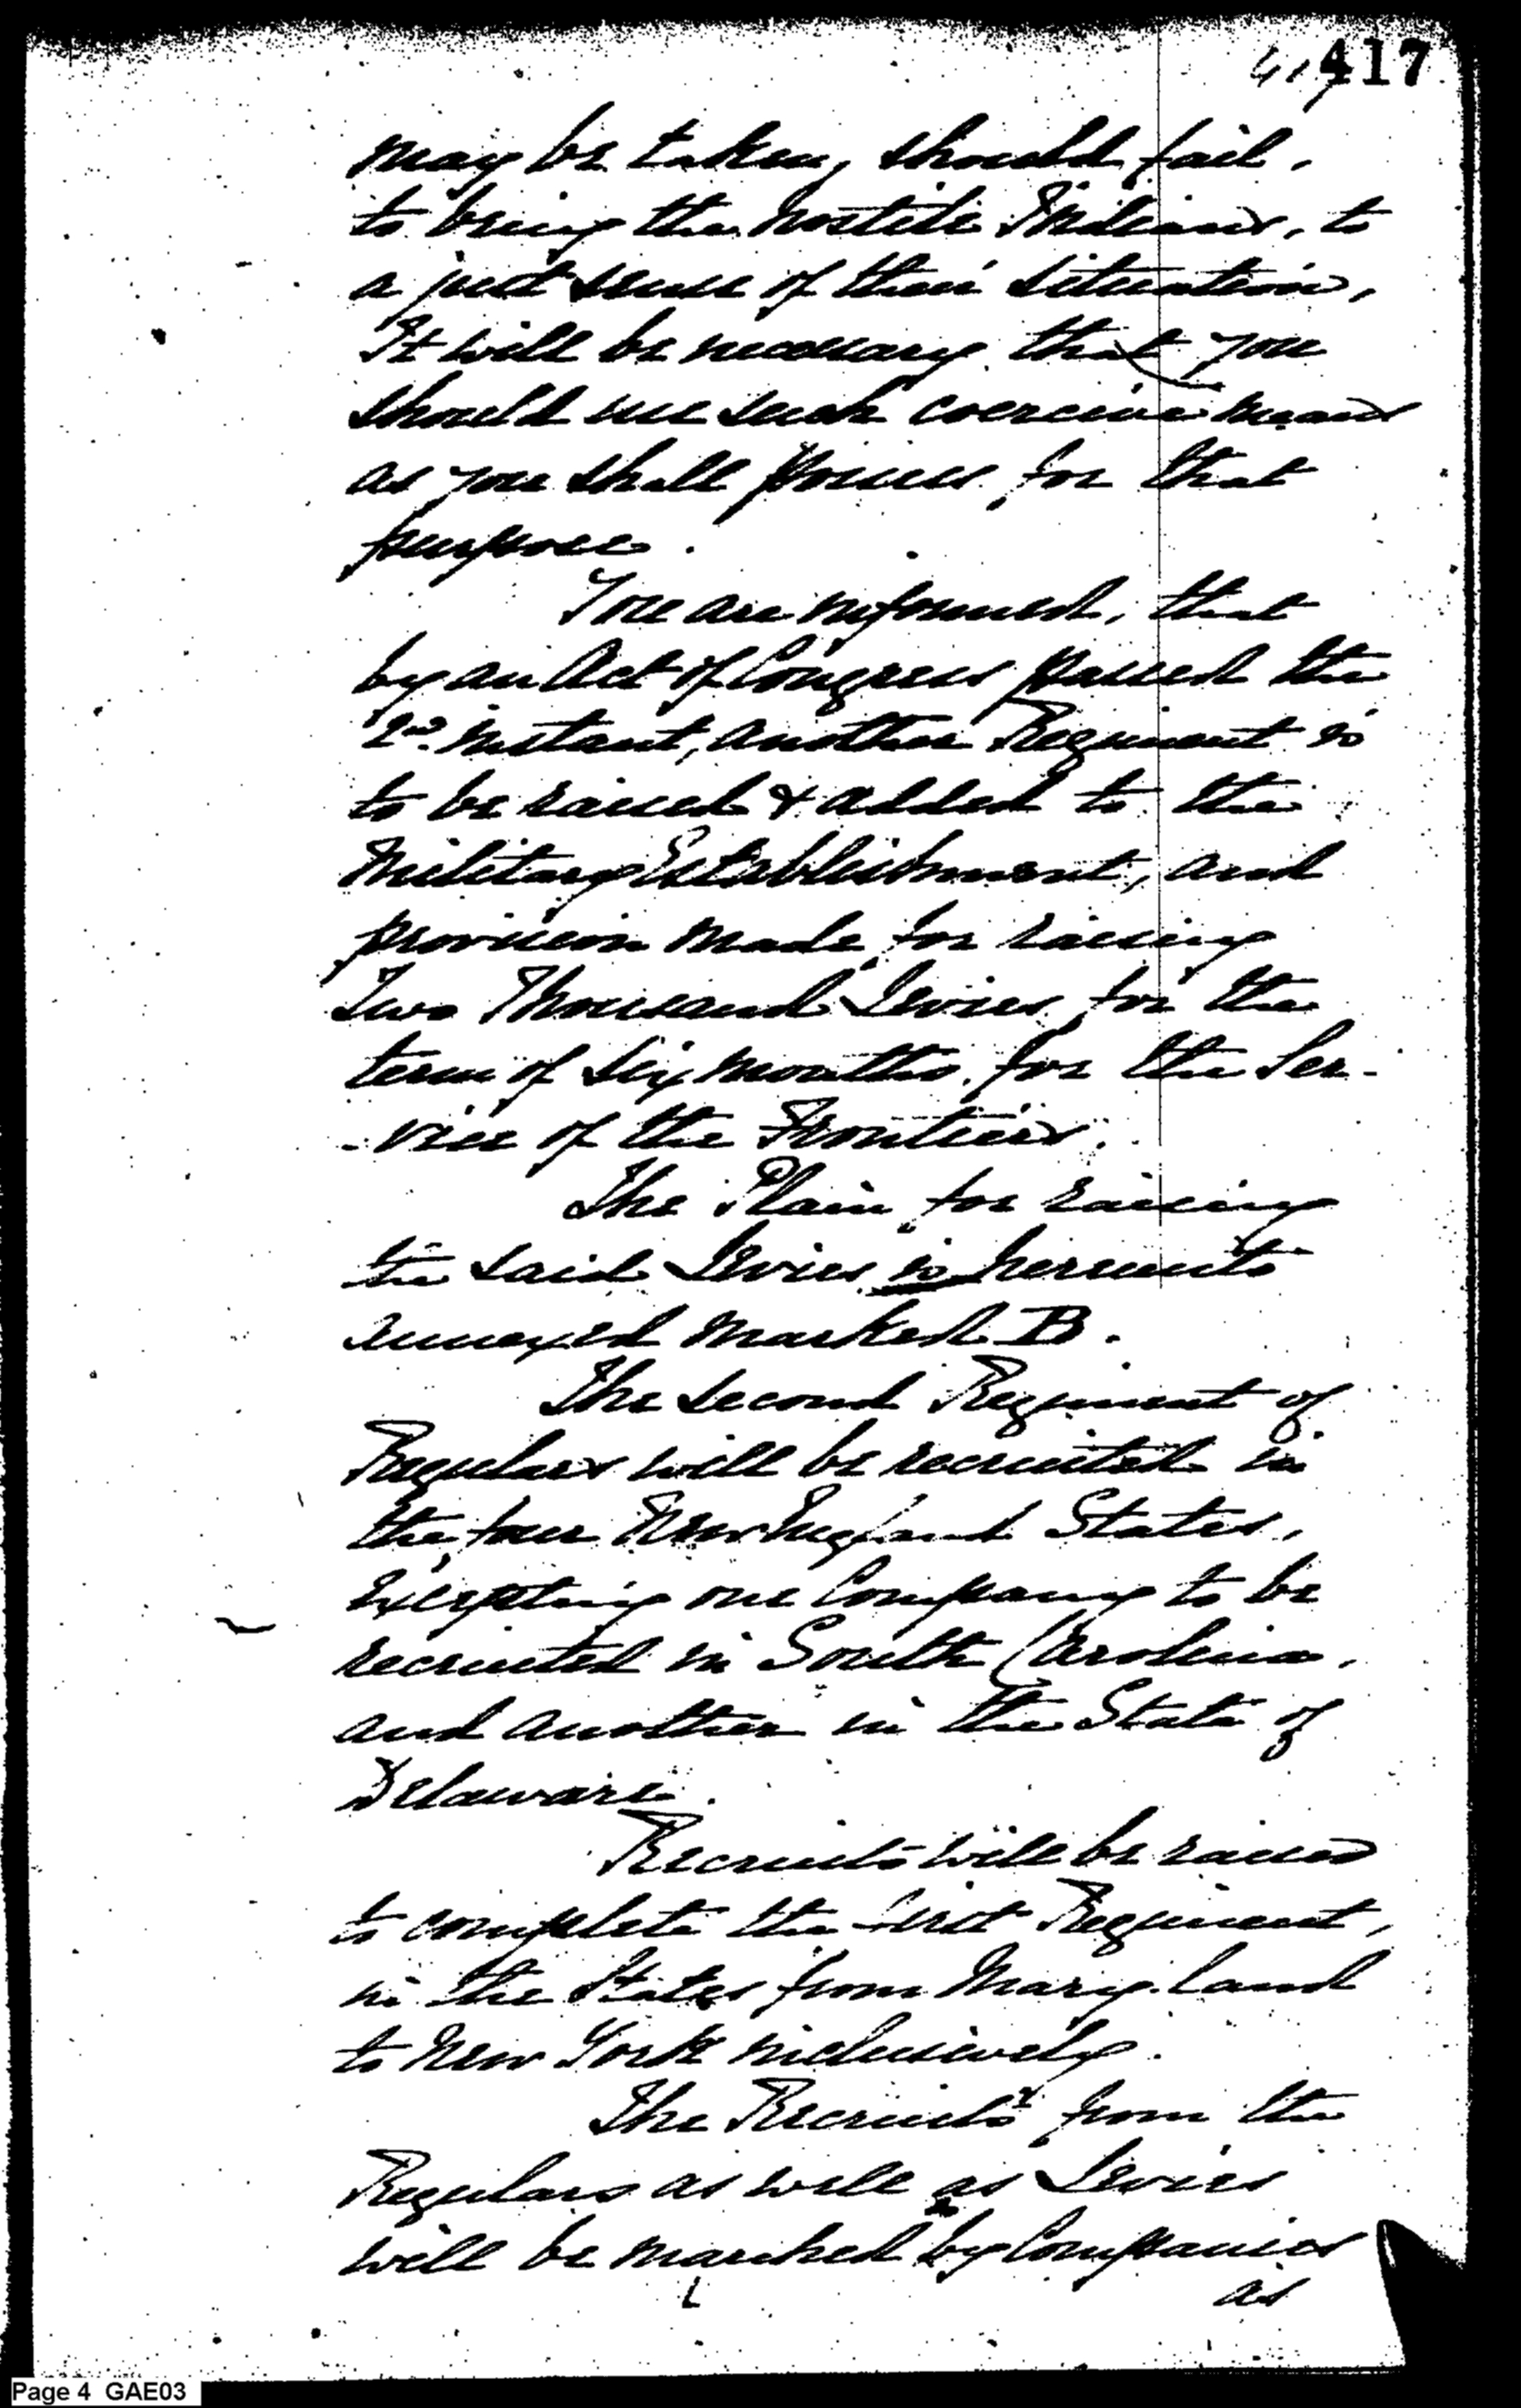 417
may be taken, should fail,
to bring the hostile Indians, to
a just sense of their situation,
It will be necessary that you
should use such coercive means
as you shall possess for that
purpose.
You are informed, that
by an Act of Congress passed the
2nd instant, another Regiment is
to be raised & added to the
Military Establishment, and
provision made for raising
Two Thousand Levies for the
term of Six months, for the Ser-
-vice of the Frontiers.
The Plan for raising
the said Levies is hereunto
annexed marked B.
The second Regiment of
Regulars will be recruited in
the four New England States,
excepting one Company to be
recruited in South Carolina,
and another in the State of
Delaware.
Recruits will be raised
to complete the first Regiment,
in the States from Mary-land
to New York inclusively.
The Recruits from the
Regulars as well as Levies
will be marched by Companies
as
Page 4 GAE03